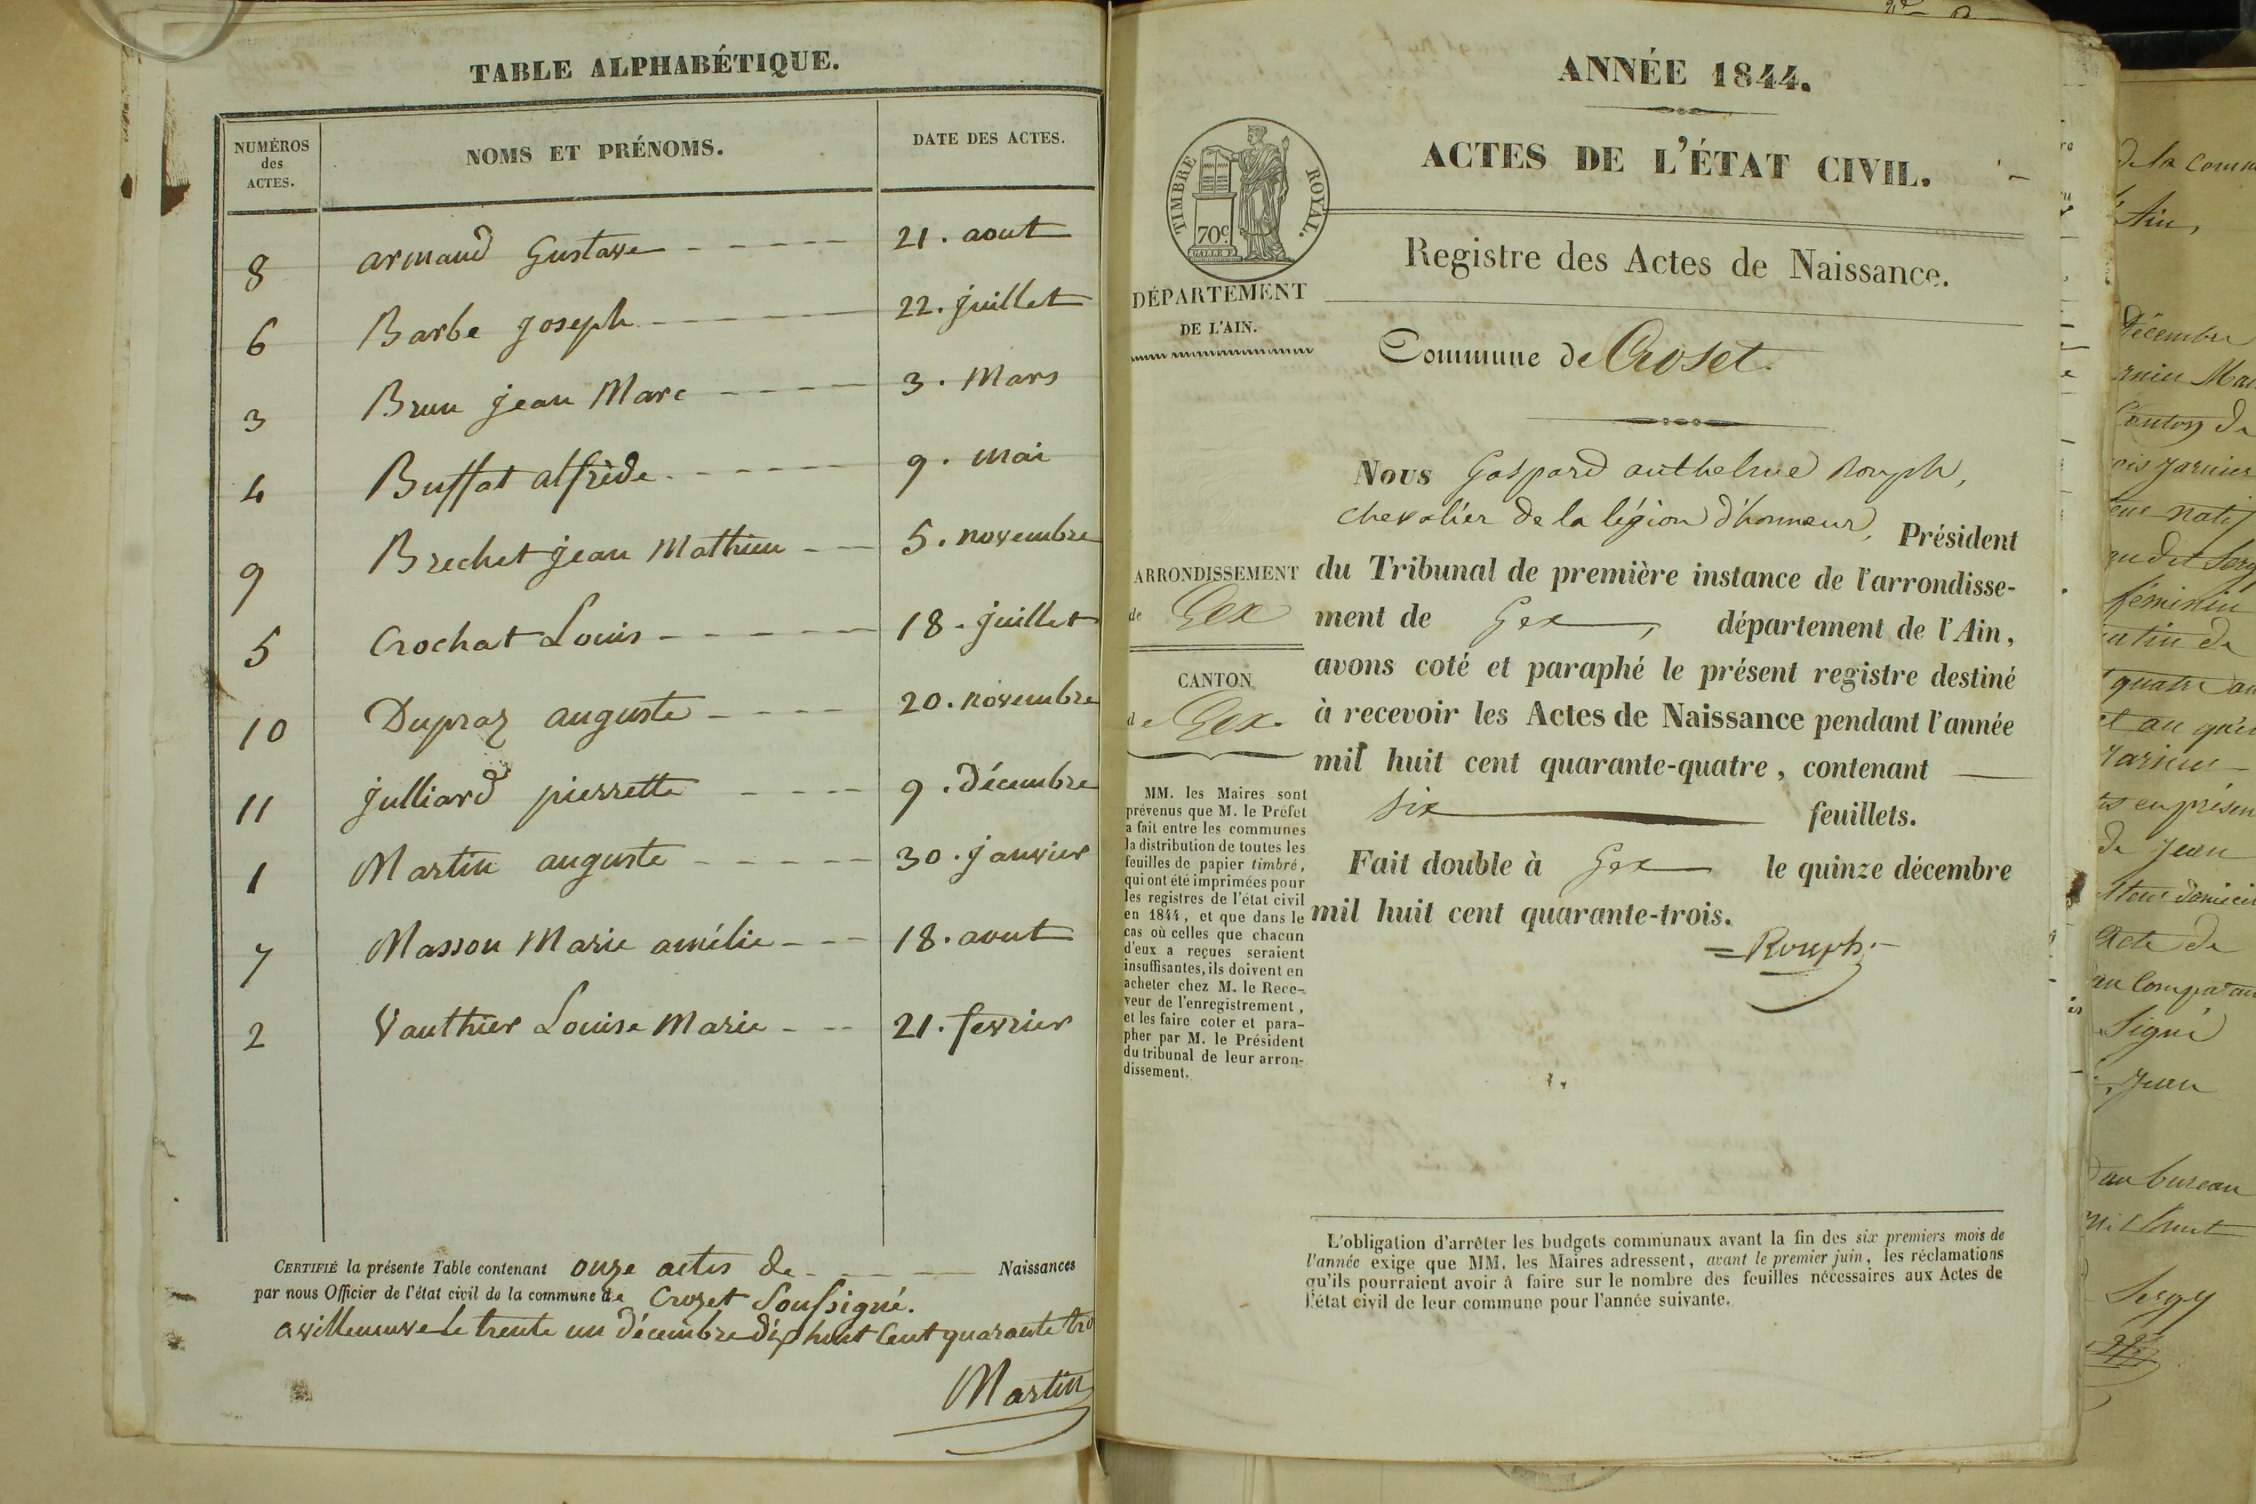 TABLE ALPHABÉTIQUE.
NUMÉROS
des
ACTES.
NOMS ET PRÉNOMS.
DATE DES ACTES.
8 armand Gustave 21. aout
6 Barbe joseph 22. juillet
3 Brun jean Marc 3. Mars
4 Buffat alfrède 9. mai
9 Brechet jean Mathieu 5. novembre
5 Crochat Louis 18. juillet
10 Dupraz auguste 20. novembre
11 julliard pierrette 9. décembre
1 Martin auguste 30. janvier
7 Masson Marie amélie 18. aout
2 Vauthier Louise Marie 21. fevrier
CERTIFIÉ la présente Table contenant onze actes de Naissances
par nous Officier de l'état civil de la commune de Crozet Soussigné.
a villeneuve le trente un décembre dix huit Cent quarante tro
Martin
ANNÉE 1844.
ACTES DE L'ÉTAT CIVIL.
TIMBRE ROYAL.
70c
Registre des Actes de Naissance.
DÉPARTEMENT
DE L'AIN.
Commune de Croset.
Nous Gaspard anthelme Rouph,
chevalier de la légion d'honneur, Président
du Tribunal de première instance de l'arrondisse-
ment de Gex, département de l'Ain,
avons coté et paraphé le présent registre destiné
à recevoir les Actes de Naissance pendant l'année
mil huit cent quarante-quatre, contenant
six feuillets.
Fait double à Gex le quinze décembre
mil huit cent quarante-trois.
Rouph
ARRONDISSEMENT
de Gex
CANTON
de Gex.
MM. les Maires sont
prévenus que M. le Préfet
a fait entre les communes
la distribution de toutes les
feuilles de papier timbré,
qui ont été imprimées pour
les registres de l'état civil
en 1844, et que dans le
cas où celles que chacun
d'eux a reçues seraient
insuffisantes, ils doivent en
acheter chez M. le Rece-
veur de l'enregistrement,
et les faire coter et para-
pher par M. le Président
du tribunal de leur arron-
dissement.
L'obligation d'arrêter les budgets communaux avant la fin des six premiers mois de
l'année exige que MM. les Maires adressent, avant le premier juin, les réclamations
qu'ils pourraient avoir à faire sur le nombre des feuilles nécessaires aux Actes de
l'état civil de leur commune pour l'année suivante.
de la comm
Ain,
Décembre
Canton de
natif
féminin
quatre
en présen
de jean
Acte de
Signé
Jean
au bureau
Sergy